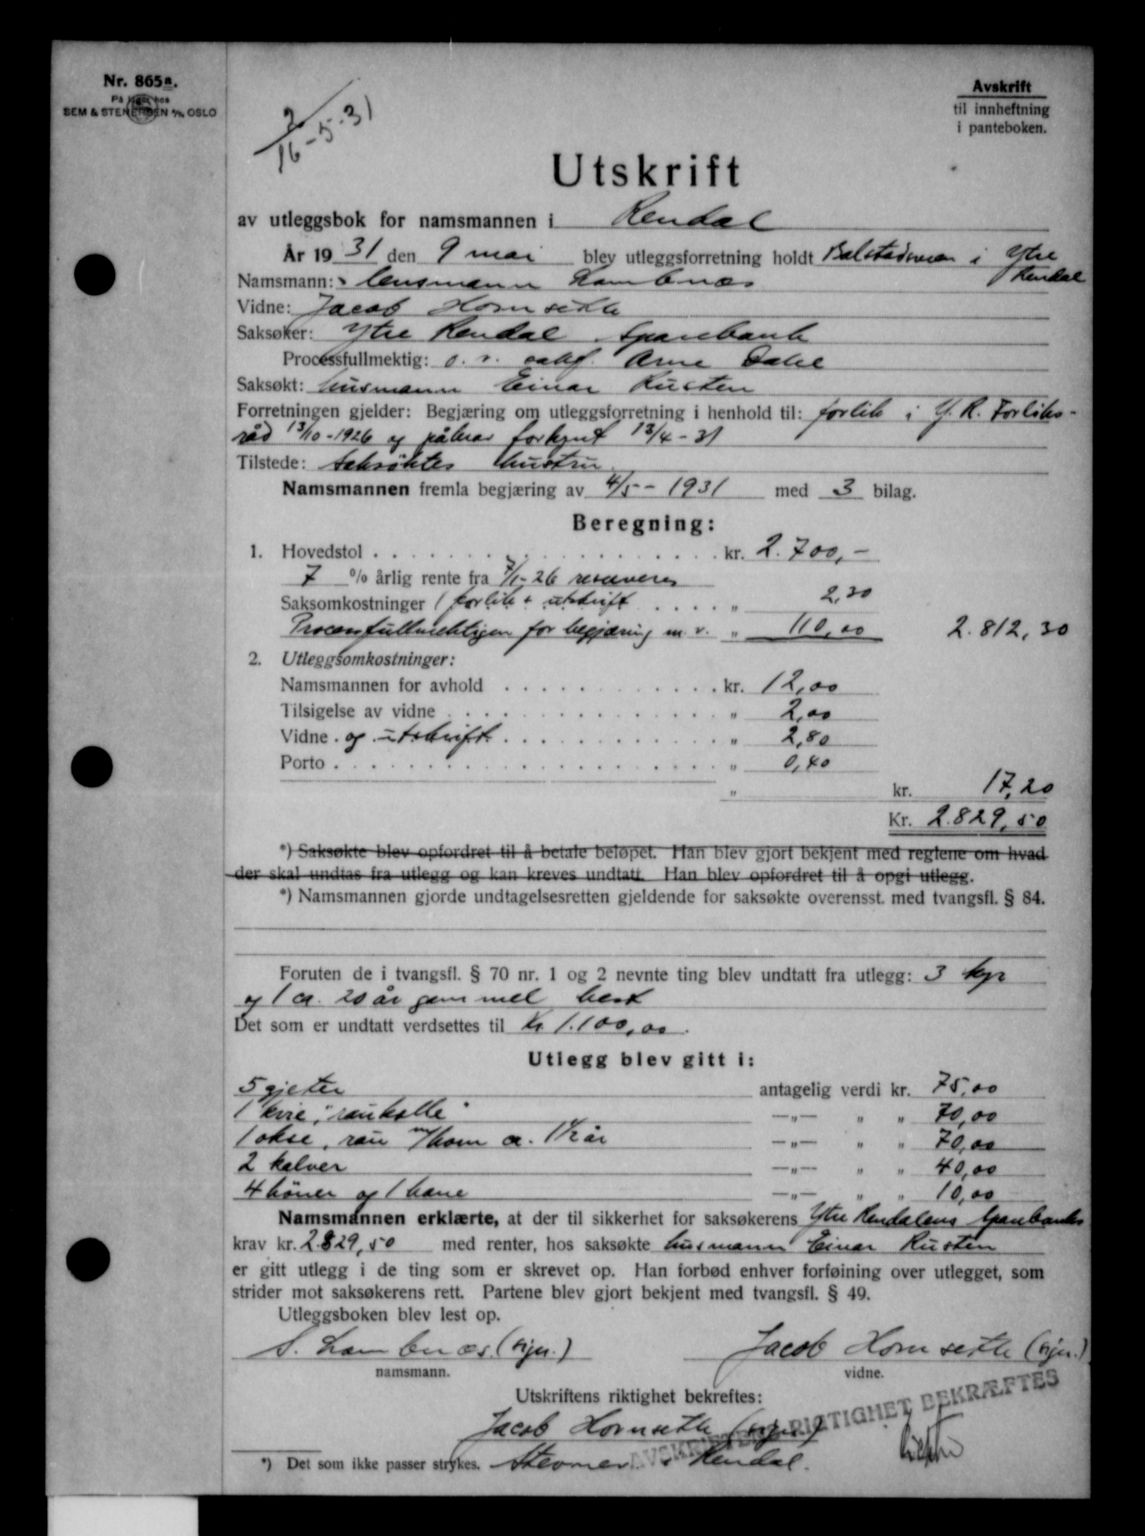 Nr. 865a.
På lager hos
SEM & STENERSEN A/S, OSLO
2/16-5-31
Avskrift
til innheftning
i panteboken.
Utskrift
av utleggsbok for namsmannen i Rendal
År 1931 den 9 mai blev utleggsforretning holdt i Ytre Rendal
Namsmann: lensmann Lombnæs
Vidne: Jacob Hornseth
Saksøker: Ytre Rendal Sparebank
Processfullmektig: o. r. sakf. Arne Dahl
Saksøkt: husmann Einar Rusten
Forretningen gjelder: Begjæring om utleggsforretning i henhold til: forlik i Y. R. Forliks-
råd 13/10-1926 og påkrav forkynt 13/4-31
Tilstede: Saksøktes hustru.
Namsmannen fremla begjæring av 4/5-1931 med 3 bilag.
Beregning:
1. Hovedstol . . . kr. 2.700,-
7 % årlig rente fra 7/1-26 reserveres
Saksomkostninger (forlik + utskrift . . . „ 2,30
Processfullmektigen for begjæring m.v. „ 110,00 2.812,30
2. Utleggsomkostninger:
Namsmannen for avhold . . . kr. 12,00
Tilsigelse av vidne . . . „ 2,00
Vidne og utskrift . . . „ 2,80
Porto . . . „ 0,40
„ kr. 17,20
Kr. 2.829,50
*) Saksøkte blev opfordret til å betale beløpet. Han blev gjort bekjent med reglene om hvad
der skal undtas fra utlegg og kan kreves undtatt. Han blev opfordret til å opgi utlegg.
*) Namsmannen gjorde undtagelsesretten gjeldende for saksøkte overensst. med tvangsfl. § 84.
Foruten de i tvangsfl. § 70 nr. 1 og 2 nevnte ting blev undtatt fra utlegg: 3 kyr
og 1 ca. 20 år gammel hest
Det som er undtatt verdsettes til Kr 1.100,00.
Utlegg blev gitt i:
5 gjeter antagelig verdi kr. 75,00
1 kvie, "raukolle" —„— „ „ 70,00
1 okse, rau m/horn ca. 1½ år —„— „ „ 70,00
2 kalver —„— „ „ 40,00
4 höner og 1 hane —„— „ „ 10,00
Namsmannen erklærte, at der til sikkerhet for saksøkerens Ytre Rendalens Sparebanks
krav kr. 2829,50 med renter, hos saksøkte husmann Einar Rusten
er gitt utlegg i de ting som er skrevet op. Han forbød enhver forføining over utlegget, som
strider mot saksøkerens rett. Partene blev gjort bekjent med tvangsfl. § 49.
Utleggsboken blev lest op.
S. Lombnæs (sign.) Jacob Hornseth (sign.)
namsmann. vidne.
Utskriftens riktighet bekreftes:
Jacob Hornseth (sign)
AVSKRIFTENS RIGTIGHET BEKRÆFTES
*) Det som ikke passer strykes. Stevnev. i Rendal.